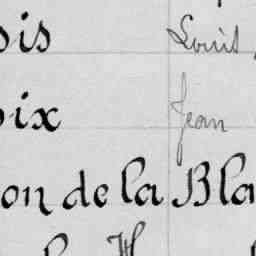 sis Louis
oix Jean
on de la Bla